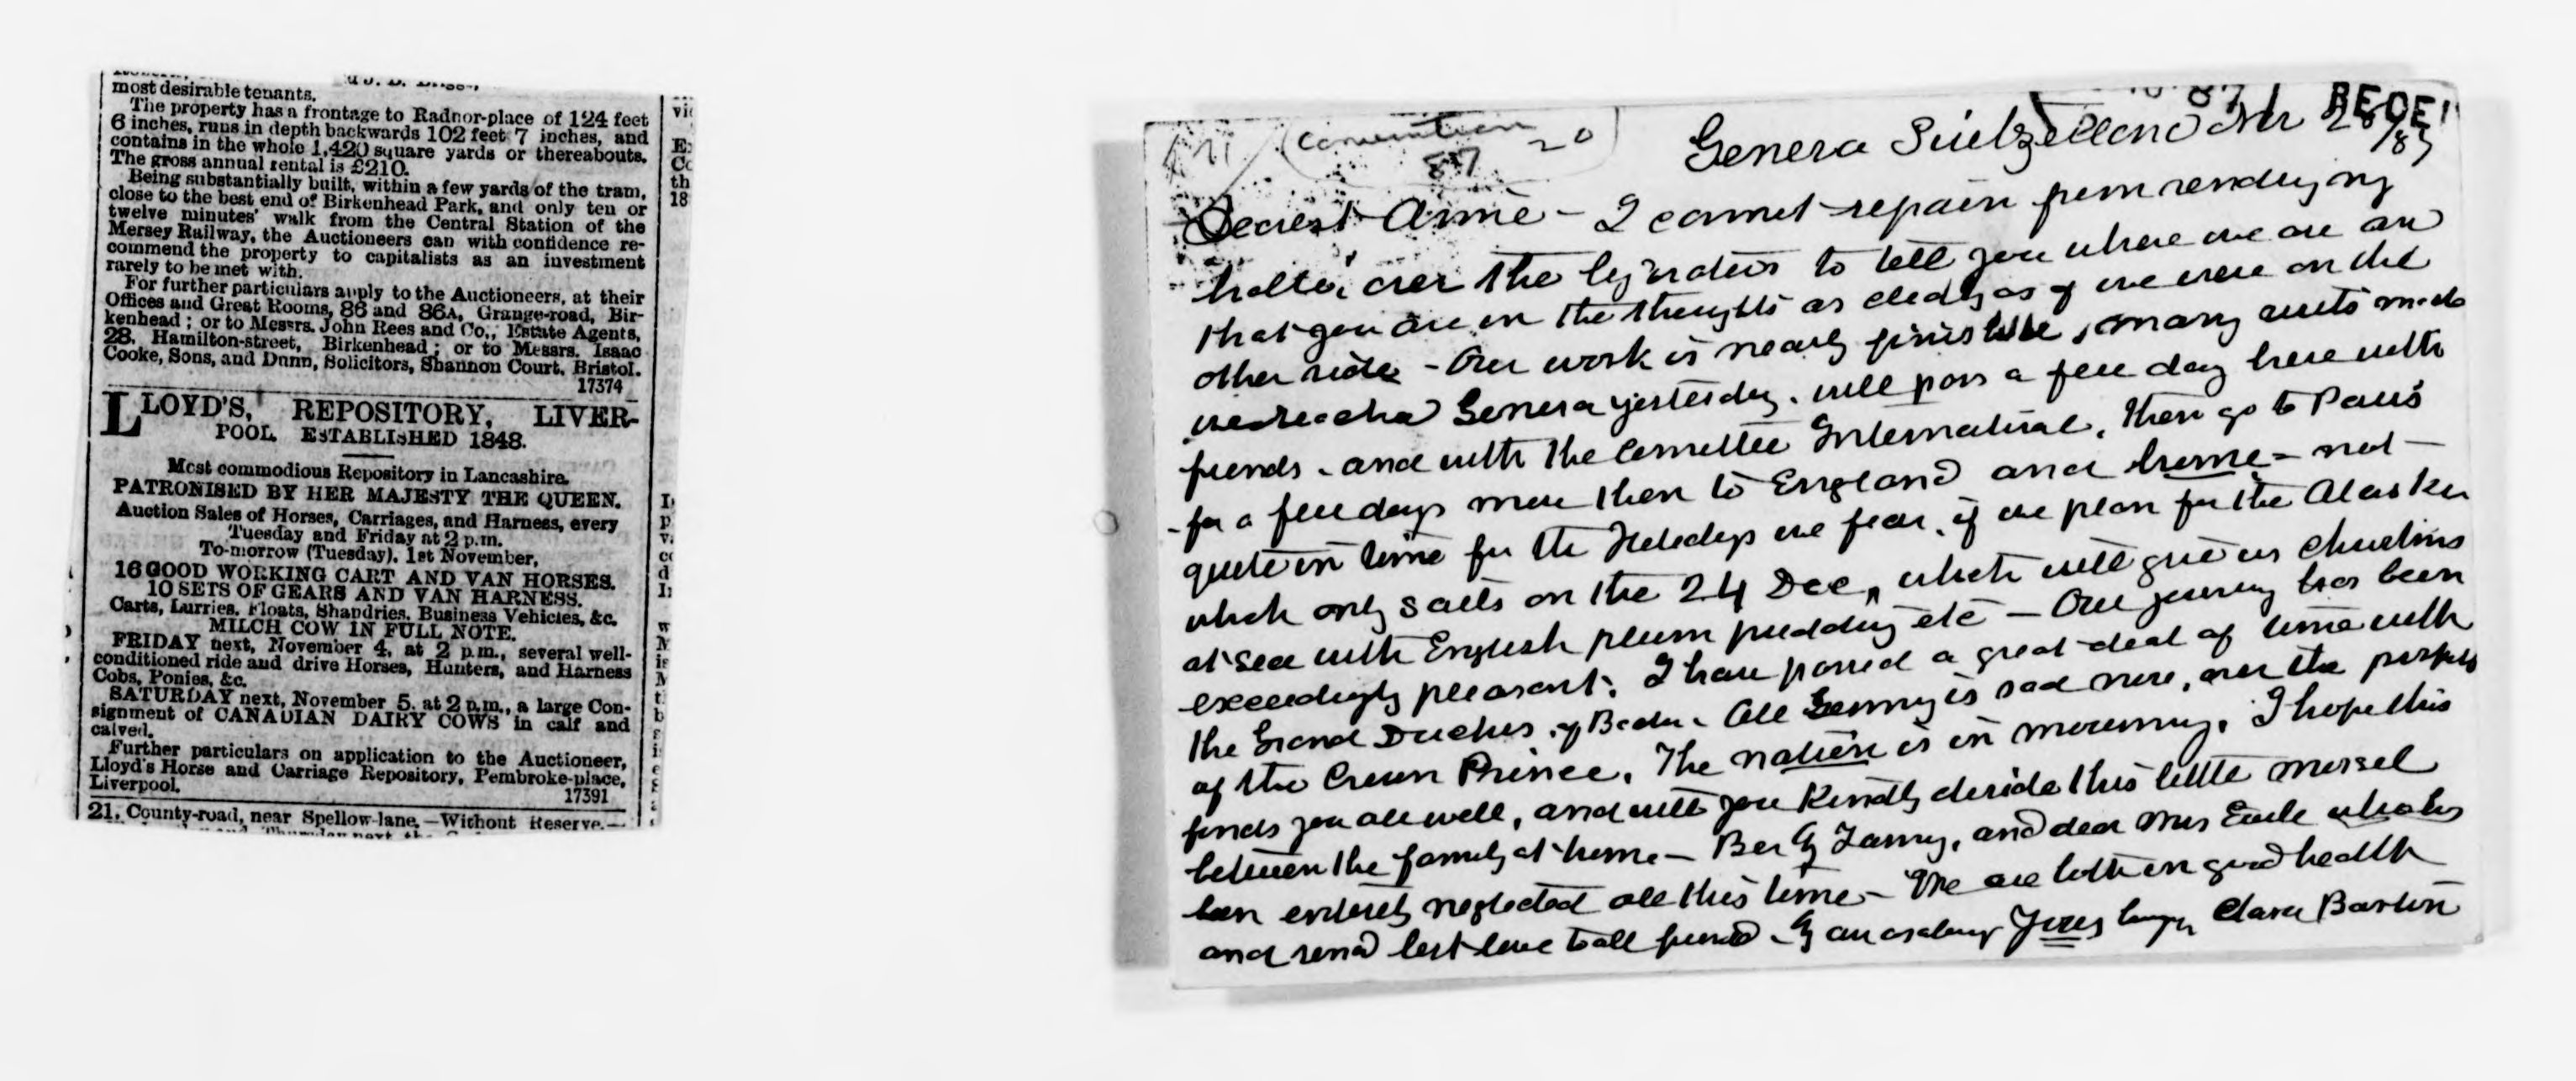 most desirable tenants.
The property has a frontage to Radnor-place of 124 feet
6 inches, runs in depth backwards 102 feet 7 inches, and
contains in the whole 1,420 square yards or thereabouts.
The gross annual rental is £210.
Being substantially built, within a few yards of the tram,
close to the best end of Birkenhead Park, and only ten or
twelve minutes' walk from the Central Station of the
Mersey Railway, the Auctioneers can with confidence re-
commend the property to capitalists as an investment
rarely to be met with.
For further particulars apply to the Auctioneers, at their
Offices and Great Rooms, 86 and 86A, Grange-road, Bir-
kenhead; or to Messrs. John Rees and Co., Estate Agents,
28, Hamilton-street, Birkenhead; or to Messrs. Isaac
Cooke, Sons, and Dunn, Solicitors, Shannon Court, Bristol.
17374
LLOYD'S, REPOSITORY, LIVER-
POOL. ESTABLISHED 1848.
Most commodious Repository in Lancashire.
PATRONISED BY HER MAJESTY THE QUEEN.
Auction Sales of Horses, Carriages, and Harness, every
Tuesday and Friday at 2 p.m.
To-morrow (Tuesday), 1st November,
16 GOOD WORKING CART AND VAN HORSES.
10 SETS OF GEARS AND VAN HARNESS.
Carts, Lurries, Floats, Shandries, Business Vehicles, &c.
MILCH COW IN FULL NOTE.
FRIDAY next, November 4, at 2 p.m., several well-
conditioned ride and drive Horses, Hunters, and Harness
Cobs, Ponies, &c.
SATURDAY next, November 5, at 2 p.m., a large Con-
signment of CANADIAN DAIRY COWS in calf and
calved.
Further particulars on application to the Auctioneer,
Lloyd's Horse and Carriage Repository, Pembroke-place,
Liverpool.
17391
21, County-road, near Spellow-lane.—Without Reserve.—
Convention 20
87
Geneva Switzerland Nov 28/87
Dearest Annie - I cannot refrain from sending my
over the to tell you where we are and
that you are in the thoughts as clearly as if we were on the
other side - Our work is nearly finished, many visits made
we reached Geneva yesterday. will pass a few days here with
friends - and with the Comittee International, then go to Paris
- for a few days more then to England and home - not
quite in time for the Holidays we fear, if we plan for the Alaska
which only sails on the 24 Dec, which will give us Christmas
at sea with English plum pudding etc - Our journey has been
exceedingly pleasant. I have passed a great deal of time with
the Grand Duchess of Baden. All Germany is sad now, over the prospects
of the Crown Prince. The nation is in mourning. I hope this
finds you all well, and will you kindly divide this little morsel
between the family at home - Fanny, and dear Mrs who has
been entirely neglected all this time - We are both in good health
and send best love to all friends Yours Clara Barton